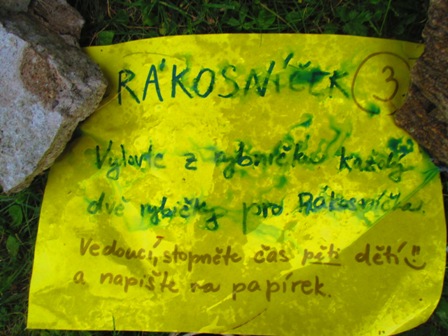 RÁKOSNÍČEK 3
Vylovte z rybníčku každý
dvě rybičky pro Rákosníčka
Vedoucí, stopněte čas pěti dětí
a napište na papírek.